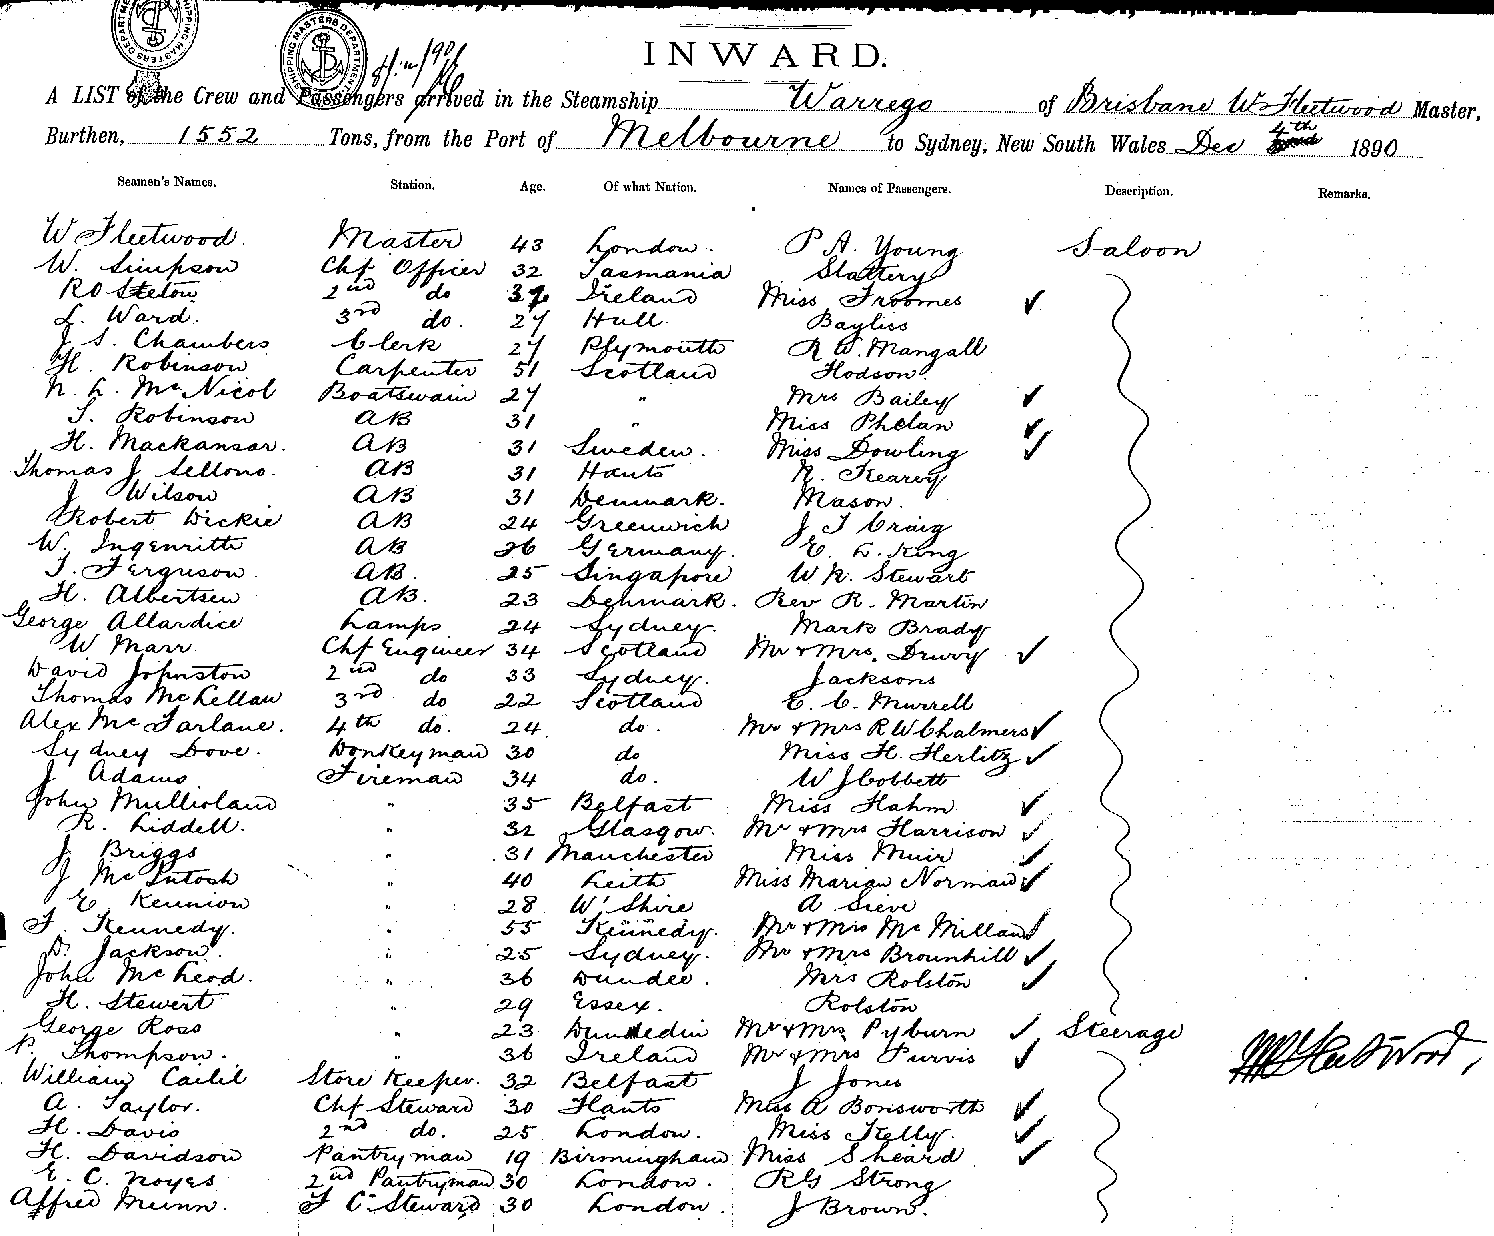 INWARD.
A LIST of the Crew and Passengers arrived in the Steamship Warrego of Brisbane W Fleetwood Master,
Burthen, 1552 Tons, from the Port of Melbourne to Sydney, New South Wales Dec 4th 1890
Seamen's Names. Station. Age. Of what Nation. Names of Passengers. Description. Remarks.
W Fleetwood. Master 43 London. P A. Young Saloon
W. Simpson Chf Officer 32 Tasmania Slattery
2nd do Ireland Miss Froomes ✓
L. Ward. 3rd do. 27 Hull Bayliss
J S. Chambers Clerk 27 Plymouth R W. Mangall
H. Robinson Carpenter 51 Scotland Hodson.
McNicol Boatswain 27 " Mrs Bailey ✓
T. Robinson AB 31 " Miss Phelan ✓
H. Mackansar. AB 31 Sweden. Miss Dowling ✓
Thomas J Sellono. AB 31 Hants N. Kearey
J Wilson AB 31 Denmark. Mason.
Robert Dickie AB 24 Greenwich J T Craig
W. Ingenrith AB 26 Germany. E. L. King
T. Ferguson AB. 25 Singapore W R. Stewart
H. Albertsen AB. 23 Denmark. Rev R. Martin
George Allardice Lamps 24 Sydney. Mark Brady
W Marr Chf Engineer 34 Scotland Mr & Mrs. Drury ✓
David Johnston 2nd do 33 Sydney. Jacksons
Thomas McLellan 3rd do 22 Scotland E. C. Murrell
Alex McFarlane. 4th do. 24 do. Mr & Mrs R W Chalmers ✓
Sydney Dove. Donkeyman 30 do Miss H. Herlitz ✓
J Adams Fireman 34 do. W J Cobbett
John Mullioland " 35 Belfast Miss Hahm ✓
R. Liddell. " 32 Glasgow. Mr & Mrs Harrison ✓
J Briggs " 31 Manchester Miss Muir ✓
J McIntosh " 40 Leith Miss Marian Norman ✓
E Kennion " 28 W'Shire A Sieve
F. Kennedy. " 55 Kennedy. Mr & Mrs McMillan ✓
D. Jackson. " 25 Sydney. Mr & Mrs Brounhill ✓
John McLeod. " 36 Dundee. Mrs Rolston ✓
H. Stewert " 29 Essex. Rolston
George Ross " 23 Dunedin Mr & Mrs Pyburn ✓ Steerage
P. Thompson. " 36 Ireland Mr & Mrs Purvis ✓ W Fleetwood,
William Cailil Store Keeper. 32 Belfast J Jones
A. Taylor. Chf Steward 30 Hants Miss A Bonsworth ✓
H. Davis 2nd do. 25 London. Miss Kelly. ✓
H. Davidson Pantryman 19 Birmingham Miss Sheard ✓
E. C. Noyes 2nd Pantryman 30 London. R G Strong
Alfred Munn. F C Steward 30 London. J Brown.